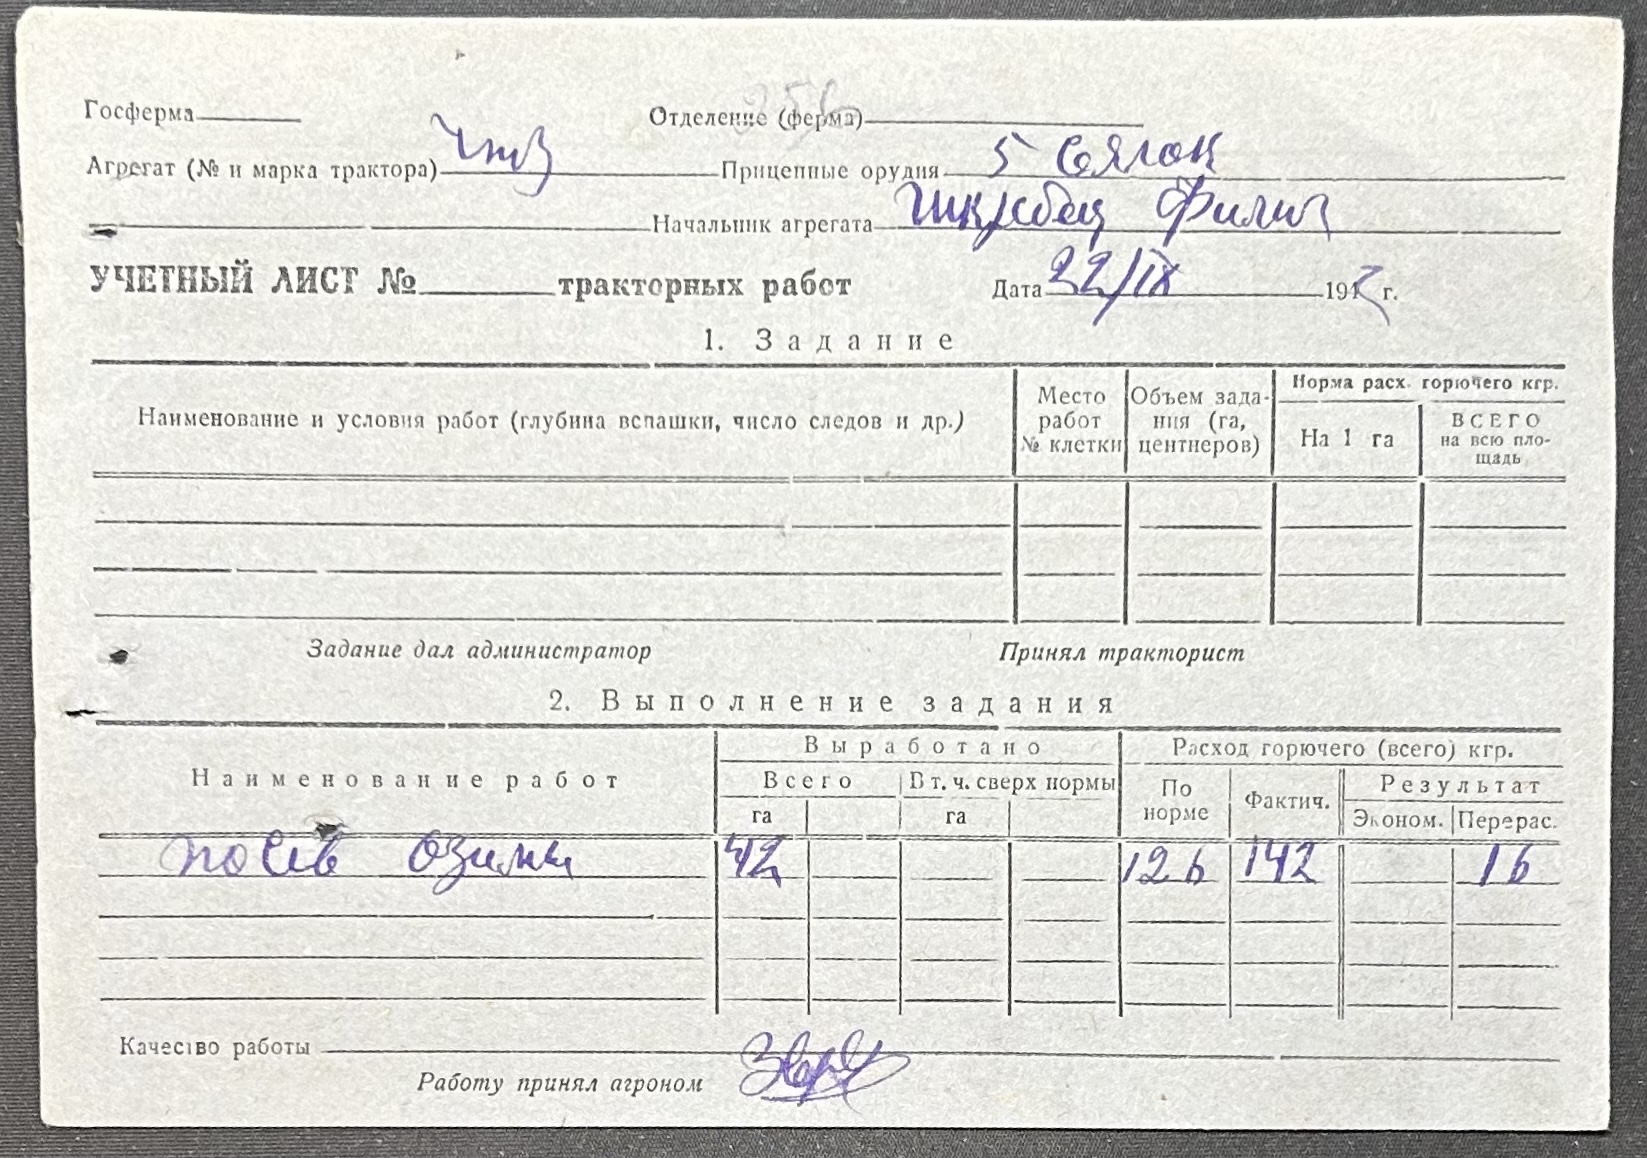 Госферма Отделение (ферма)
Агрегат (№ и марка трактора) чтз Прицепные орудия 5 сялок
Начальник агрегата Шкребец Филип
УЧЕТНЫЙ ЛИСТ № тракторных работ Дата 22/IX 194 г.
1. Задание
Наименование и условия работ (глубина вспашки, число следов и др.)
Место работ № клетки
Объем задания (га, центнеров)
Норма расх. горючего кгр.
На 1 га
ВСЕГО на всю площадь
Задание дал администратор Принял тракторист
2. Выполнение задания
Наименование работ
Выработано
Всего В т. ч. сверх нормы
га га
Расход горючего (всего) кгр.
По норме
Фактич.
Результат
Эконом. Перерас.
посів озими 42 126 142 16
Качество работы
Работу принял агроном